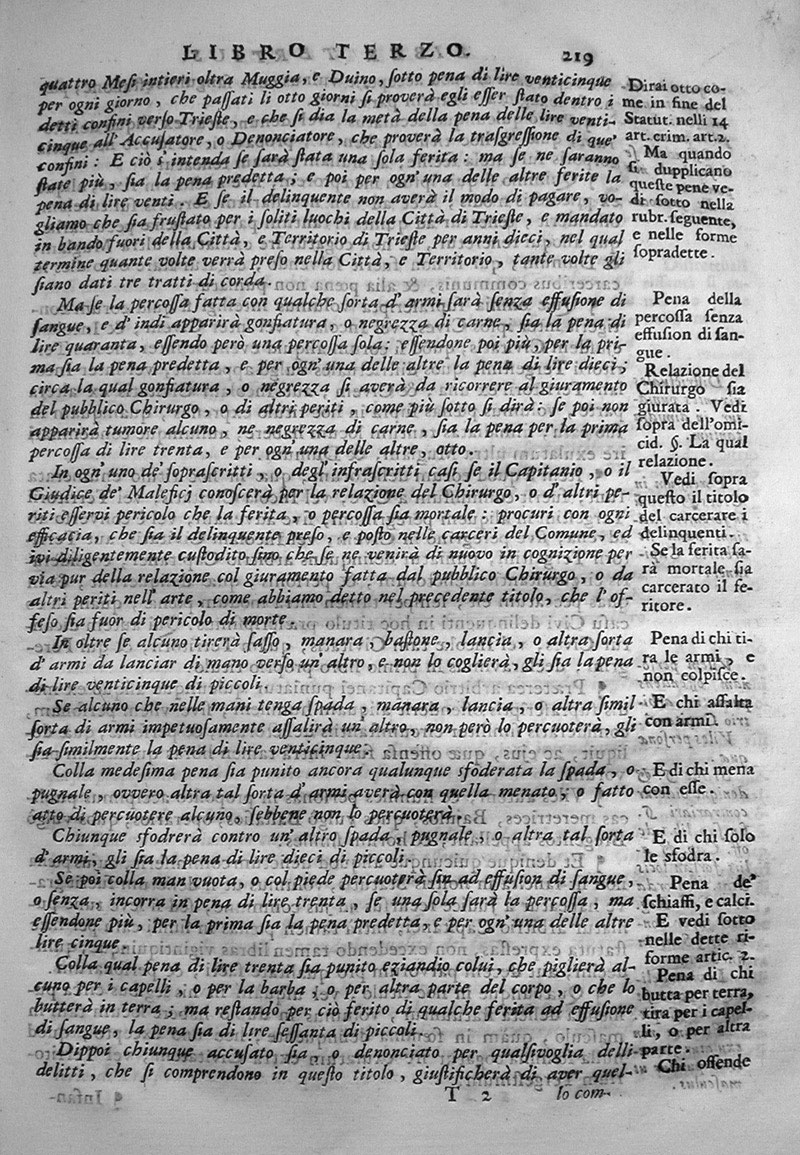 LIBRO TERZO.
219
quattro Meſi intieri oltra Muggia, e Duino, ſotto pena di lire venticinque
per ogni giorno, che paſſati li otto giorni ſi proverà egli eſſer ſtato dentro i
detti confini verſo Trieſte, e che ſi dia la metà della pena delle lire venti-
cinque all' Accuſatore, o Denonciatore, che proverà la traſgreſſione di que'
confini: E ciò s'intenda ſe ſarà ſtata una ſola ferita: ma ſe ne ſaranno
ſtate più, ſia la pena predetta; e poi per ogn' una delle altre ferite la
pena di lire venti. E ſe il delinquente non averà il modo di pagare, vo-
gliamo che ſia fruſtato per i ſoliti luochi della Città di Trieſte, e mandato
in bando fuori della Città, e Territorio di Trieſte per anni dieci, nel qual
termine quante volte verrà preſo nella Città, e Territorio, tante volte gli
ſiano dati tre tratti di corda.
Ma ſe la percoſſa fatta con qualche ſorta d' armi ſarà ſenza effuſione di
ſangue, e d' indi apparirà gonfiatura, o negrezza di carne, ſia la pena di
lire quaranta, eſſendo però una percoſſa ſola: eſſendone poi più, per la pri-
ma ſia la pena predetta, e per ogn' una delle altre la pena di lire dieci;
circa la qual gonfiatura, o negrezza ſi averà da ricorrere al giuramento
del pubblico Chirurgo, o di altri periti, come più ſotto ſi dirà: ſe poi non
apparirà tumore alcuno, ne negrezza di carne, ſia la pena per la prima
percoſſa di lire trenta, e per ogn' una delle altre, otto.
In ogn' uno de' ſopraſcritti, o degl' infraſcritti caſi ſe il Capitanio, o il
Giudice de' Maleficj conoſcerà per la relazione del Chirurgo, o d' altri pe-
riti eſſervi pericolo che la ferita, o percoſſa ſia mortale: procuri con ogni
efficacia, che ſia il delinquente preſo, e poſto nelle carceri del Comune, ed
ivi diligentemente cuſtodito ſino che ſe ne venirà di nuovo in cognizione per
via pur della relazione col giuramento fatta dal pubblico Chirurgo, o da
altri periti nell' arte, come abbiamo detto nel precedente titolo, che l' of-
feſo ſia fuor di pericolo di morte.
In oltre ſe alcuno tirerà ſaſſo, manara, baſtone, lancia, o altra ſorta
d' armi da lanciar di mano verſo un' altro, e non lo coglierà, gli ſia la pena
di lire venticinque di piccoli.
Se alcuno che nelle mani tenga ſpada, manara, lancia, o altra ſimil
ſorta di armi impetuoſamente aſſalirà un' altro, non però lo percuoterà, gli
ſia ſimilmente la pena di lire venticinque.
Colla medeſima pena ſia punito ancora qualunque sfoderata la ſpada, o
pugnale, ovvero altra tal ſorta d' armi averà con quella menato, o fatto
atto di percuotere alcuno, ſebbene non lo percuoterà.
Chiunque sfodrerà contro un' altro ſpada, pugnale, o altra tal ſorta
d' armi, gli ſia la pena di lire dieci di piccoli.
Se poi colla man vuota, o col piede percuoterà ſin ad effuſion di ſangue,
o ſenza, incorra in pena di lire trenta, ſe una ſola ſarà la percoſſa, ma
eſſendone più, per la prima ſia la pena predetta, e per ogn' una delle altre
lire cinque.
Colla qual pena di lire trenta ſia punito eziandio colui, che piglierà al-
cuno per i capelli, o per la barba, o per altra parte del corpo, o che lo
butterà in terra; ma reſtando per ciò ferito di qualche ferita ad effuſione
di ſangue, la pena ſia di lire ſeſſanta di piccoli.
Dippoi chiunque accuſato ſia, o denonciato per qualſivoglia delli
delitti, che ſi comprendono in queſto titolo, giuſtificherà di aver quel-
T 2
lo com-
Dirai otto co-
me in fine del
Statut. nelli 14
art. crim. art. 2.
Ma quando
ſi dupplicano
queſte pene ve-
di ſotto nella
rubr. ſeguente,
e nelle forme
ſopradette.
Pena della
percoſſa ſenza
effuſion di ſan-
gue.
Relazione del
Chirurgo ſia
giurata. Vedi
ſopra dell'omi-
cid. §. La qual
relazione.
Vedi ſopra
queſto il titolo
del carcerare i
delinquenti.
Se la ferita ſa-
rà mortale ſia
carcerato il fe-
ritore.
Pena di chi ti-
ra le armi, e
non colpiſce.
E chi aſſalta
con armi.
E di chi mena
con eſſe.
E di chi ſolo
le sfodra.
Pena de'
ſchiaffi, e calci.
E vedi ſotto
nelle dette ri-
forme artic. 2.
Pena di chi
butta per terra,
tira per i capel-
li, o per altra
parte.
Chi offende